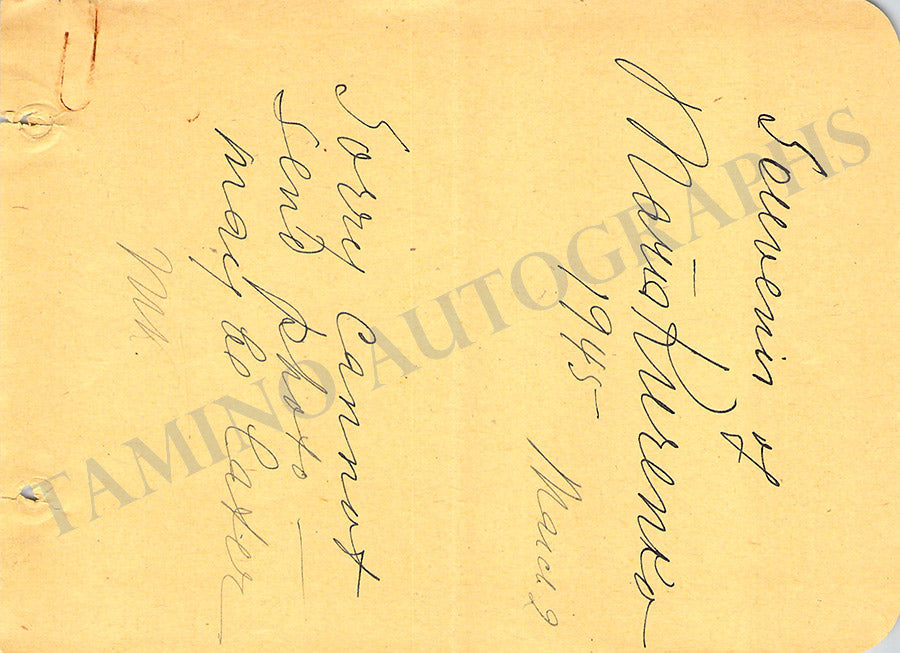 Souvenir of
Maria Kurenko
1945 – March 2
Sorry Cannot
Send photo –
may be later
MK.
TAMINO AUTOGRAPHS